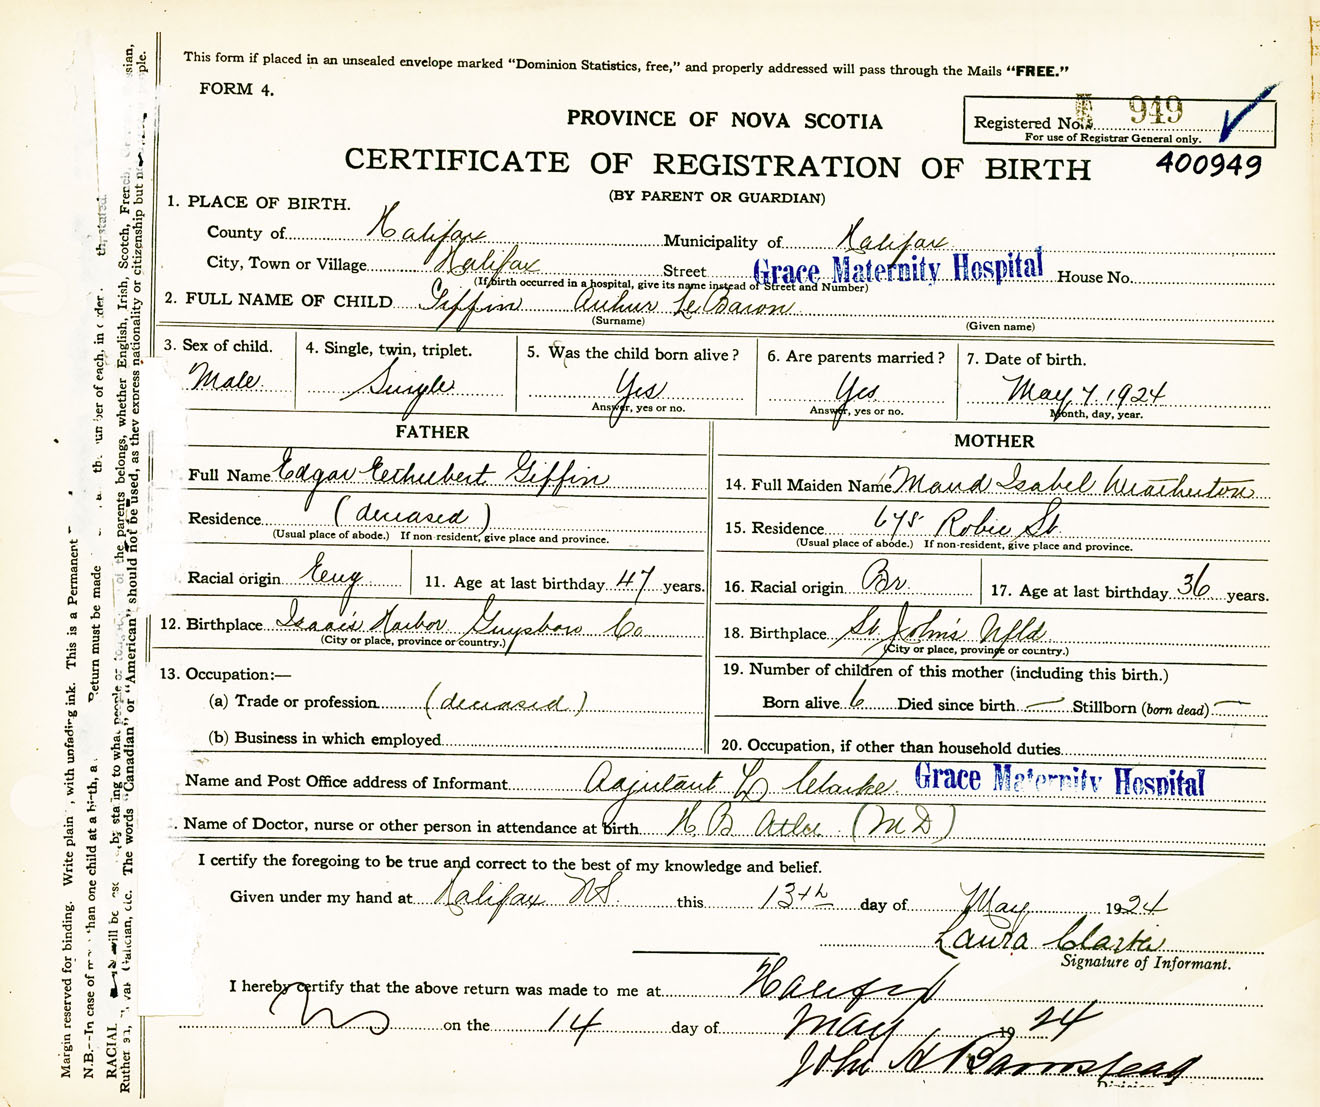 This form if placed in an unsealed envelope marked “Dominion Statistics, free,” and properly addressed will pass through the Mails “FREE.”
FORM 4.
PROVINCE OF NOVA SCOTIA
Registered No. 949
For use of Registrar General only.
CERTIFICATE OF REGISTRATION OF BIRTH
400949
(BY PARENT OR GUARDIAN)
1. PLACE OF BIRTH.
County of Halifax Municipality of Halifax
City, Town or Village Halifax Street Grace Maternity Hospital House No.
(If birth occurred in a hospital, give its name instead of Street and Number)
2. FULL NAME OF CHILD Giffin Arthur Le Baron
(Surname) (Given name)
3. Sex of child. 4. Single, twin, triplet. 5. Was the child born alive? 6. Are parents married? 7. Date of birth.
Male Single Yes Yes May 7 1924
Answer, yes or no. Answer, yes or no. Month, day, year.
FATHER MOTHER
Full Name Edgar Giffin
14. Full Maiden Name Maud Isabel Weatherton
Residence (deceased)
(Usual place of abode.) If non-resident, give place and province.
15. Residence 675 Robie St.
(Usual place of abode.) If non-resident, give place and province.
Racial origin Eng 11. Age at last birthday 47 years.
16. Racial origin Br. 17. Age at last birthday 36 years.
12. Birthplace Isaac's Harbor Guysboro Co
(City or place, province or country.)
18. Birthplace St. John's Nfld.
(City or place, province or country.)
13. Occupation:—
(a) Trade or profession (deceased)
(b) Business in which employed
19. Number of children of this mother (including this birth.)
Born alive 6 Died since birth — Stillborn (born dead) —
20. Occupation, if other than household duties
Name and Post Office address of Informant Adjutant L Clarke Grace Maternity Hospital
Name of Doctor, nurse or other person in attendance at birth H B Atlee (MD)
I certify the foregoing to be true and correct to the best of my knowledge and belief.
Given under my hand at Halifax NS. this 13th day of May 1924
Laura Clarke
Signature of Informant.
I hereby certify that the above return was made to me at Halifax
NS on the 14 day of May 1924
John H Barnstead
Division
Margin reserved for binding. Write plain , with unfading ink. This is a Permanent
N.B.—In case of than one child at a birth, a Return must be made number of each, in order stated.
RACIAL will be by stating to what people or of the parents belongs, whether English, Irish, Scotch, French,
The words “Canadian” or “American” should not be used, as they express nationality or citizenship but